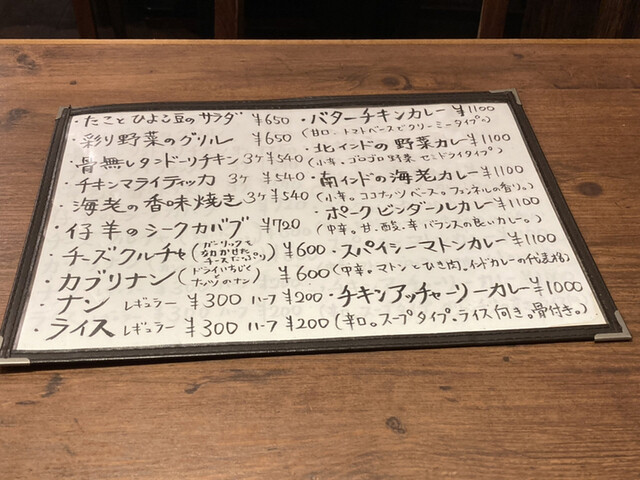 ・たことひよこ豆のサラダ ¥650
・彩り野菜のグリル ¥650
・骨無しタンドーリチキン 3ケ ¥540
・チキンマライティッカ 3ケ ¥540
・海老の香味焼き 3ケ ¥540
・仔羊のシークカバブ ¥720
・チーズクルチャ(ガーリックを効かせたチーズたっぷり) ¥600
・カブリナン(ドライいちじくとナッツのナン) ¥600
・ナン レギュラー ¥300 ハーフ ¥200
・ライス レギュラー ¥300 ハーフ ¥200
・バターチキンカレー ¥1100
(甘口。トマトベースでクリーミータイプ。)
・北インドの野菜カレー ¥1100
(小辛。ゴロゴロ野菜、セミドライタイプ)
・南インドの海老カレー ¥1100
(小辛。ココナッツベース。フェンネルの香り。)
・ポークビンダールカレー ¥1100
(中辛。甘・酸・辛バランスの良いカレー。)
・スパイシーマトンカレー ¥1100
(中辛。マトンとひき肉。インドカレーの代表格)
・チキンアッチャーリーカレー ¥1000
(辛口。スープタイプ、ライス向き。骨付き。)